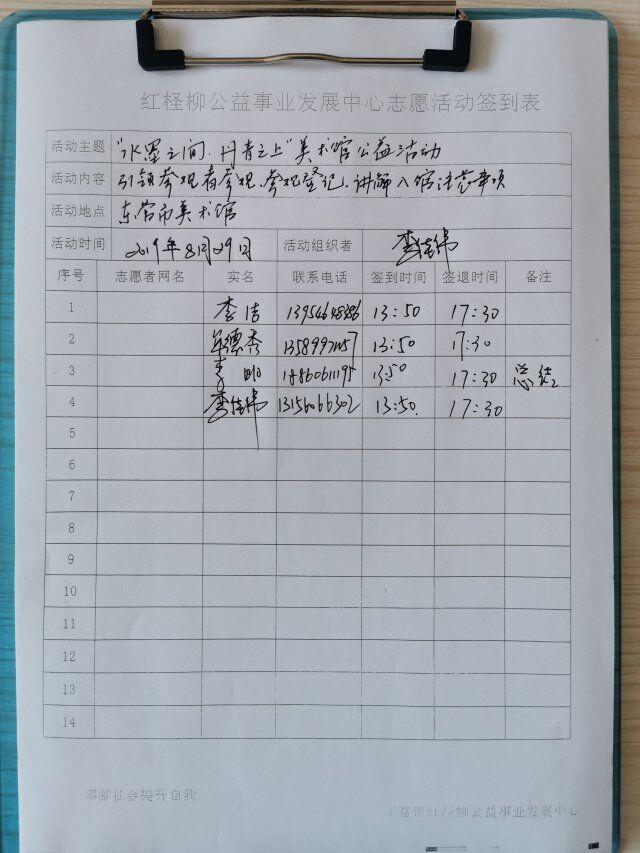 红柽柳公益事业发展中心志愿活动签到表
活动主题 "水墨之间·丹青之上"美术馆公益活动
活动内容 引领参观者参观、参观登记、讲解入馆注意事项
活动地点 东营市美术馆
活动时间 2019年8月29日 活动组织者 李佳伟
序号 志愿者网名 实名 联系电话 签到时间 签退时间 备注
1 李洁 13954648386 13:50 17:30
2 德秀 13:50 17:30
3 李明 13:50 17:30 总结
4 李佳伟 13156066302 13:50 17:30
5
6
7
8
9
10
11
12
13
14
奉献社会提升自我
红柽柳公益事业发展中心